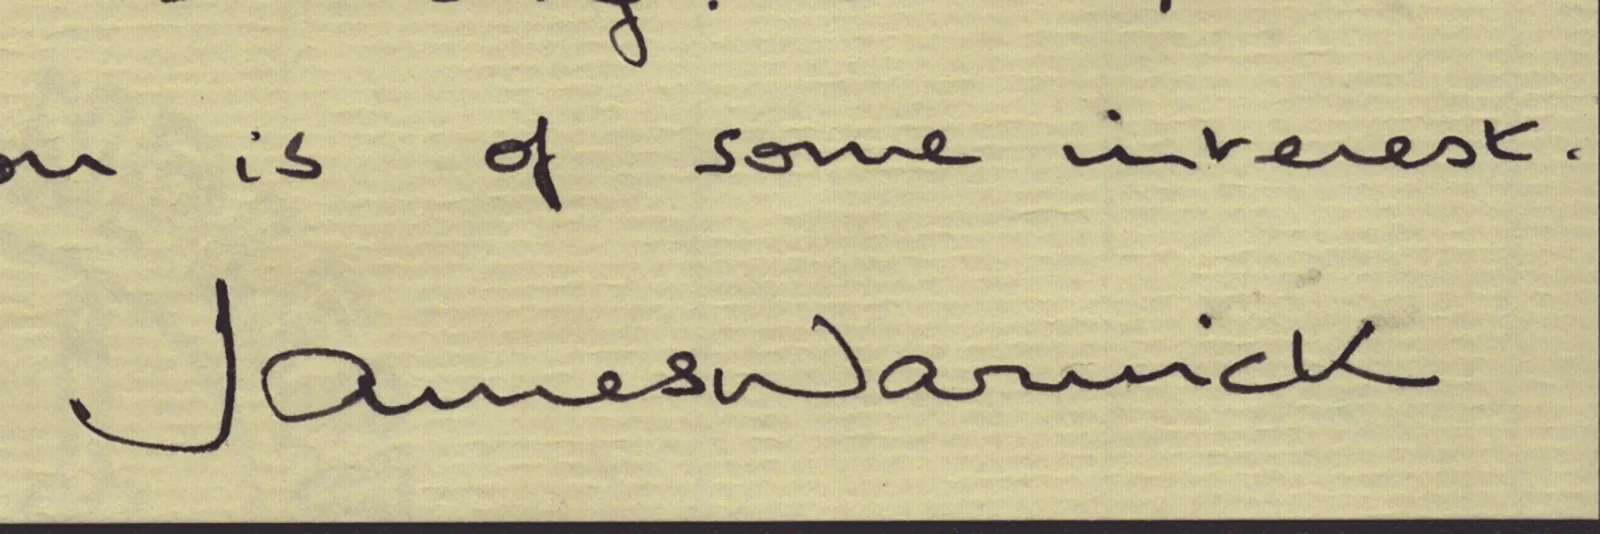 is of some interest.
James Warwick